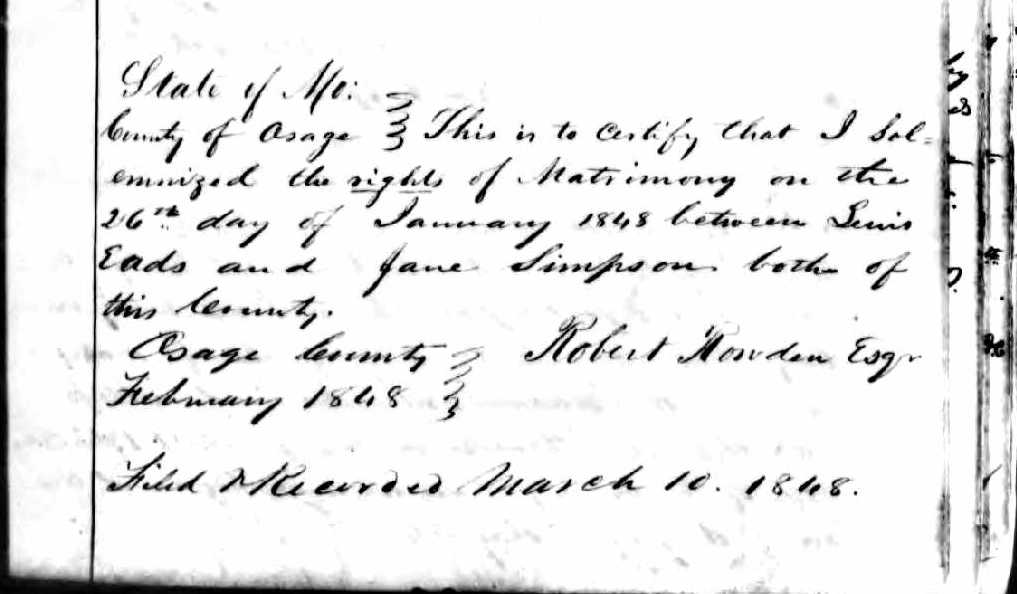 State of Mo:
County of Osage } This is to certify that I Sol=
emnized the rights of Matrimony on the
26th day of January 1848 between Lewis
Eads and Jane Simpson both of
this County.
Osage County } Robert Rowden Esqr
February 1848 }
Filed & Recorded March 10. 1848.